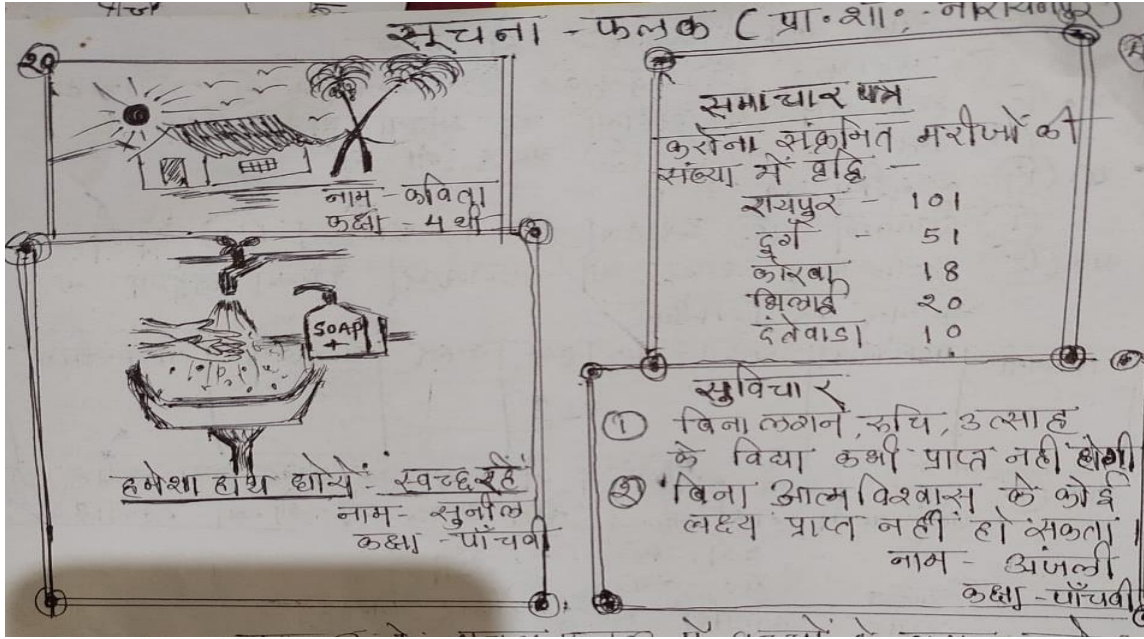 सूचना - फलक ( प्रा. शा. - नारायणपुर )
20
नाम - कविता
कक्षा - 4 थी
SOAP
+
हमेशा हाथ धोयें स्वच्छ रहें
नाम - सुनील
कक्षा - पाँचवी
समाचार पत्र
करोना संक्रमित मरीजों की
संख्या में वृद्धि -
रायपुर - 101
दुर्ग - 51
कोरबा 18
भिलाई 20
दंतेवाडा 10
सुविचार
① बिना लगन, रुचि, उत्साह
के विद्या कभी प्राप्त नही होगी
② बिना आत्मविश्वास के कोई
लक्ष्य प्राप्त नहीं हो सकता।
नाम - अंजली
कक्षा - पाँचवी